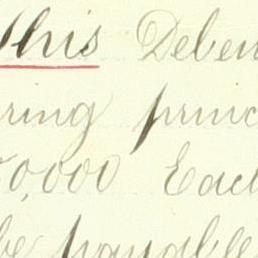 This Deben
ring princ
0,000 Each
be payable